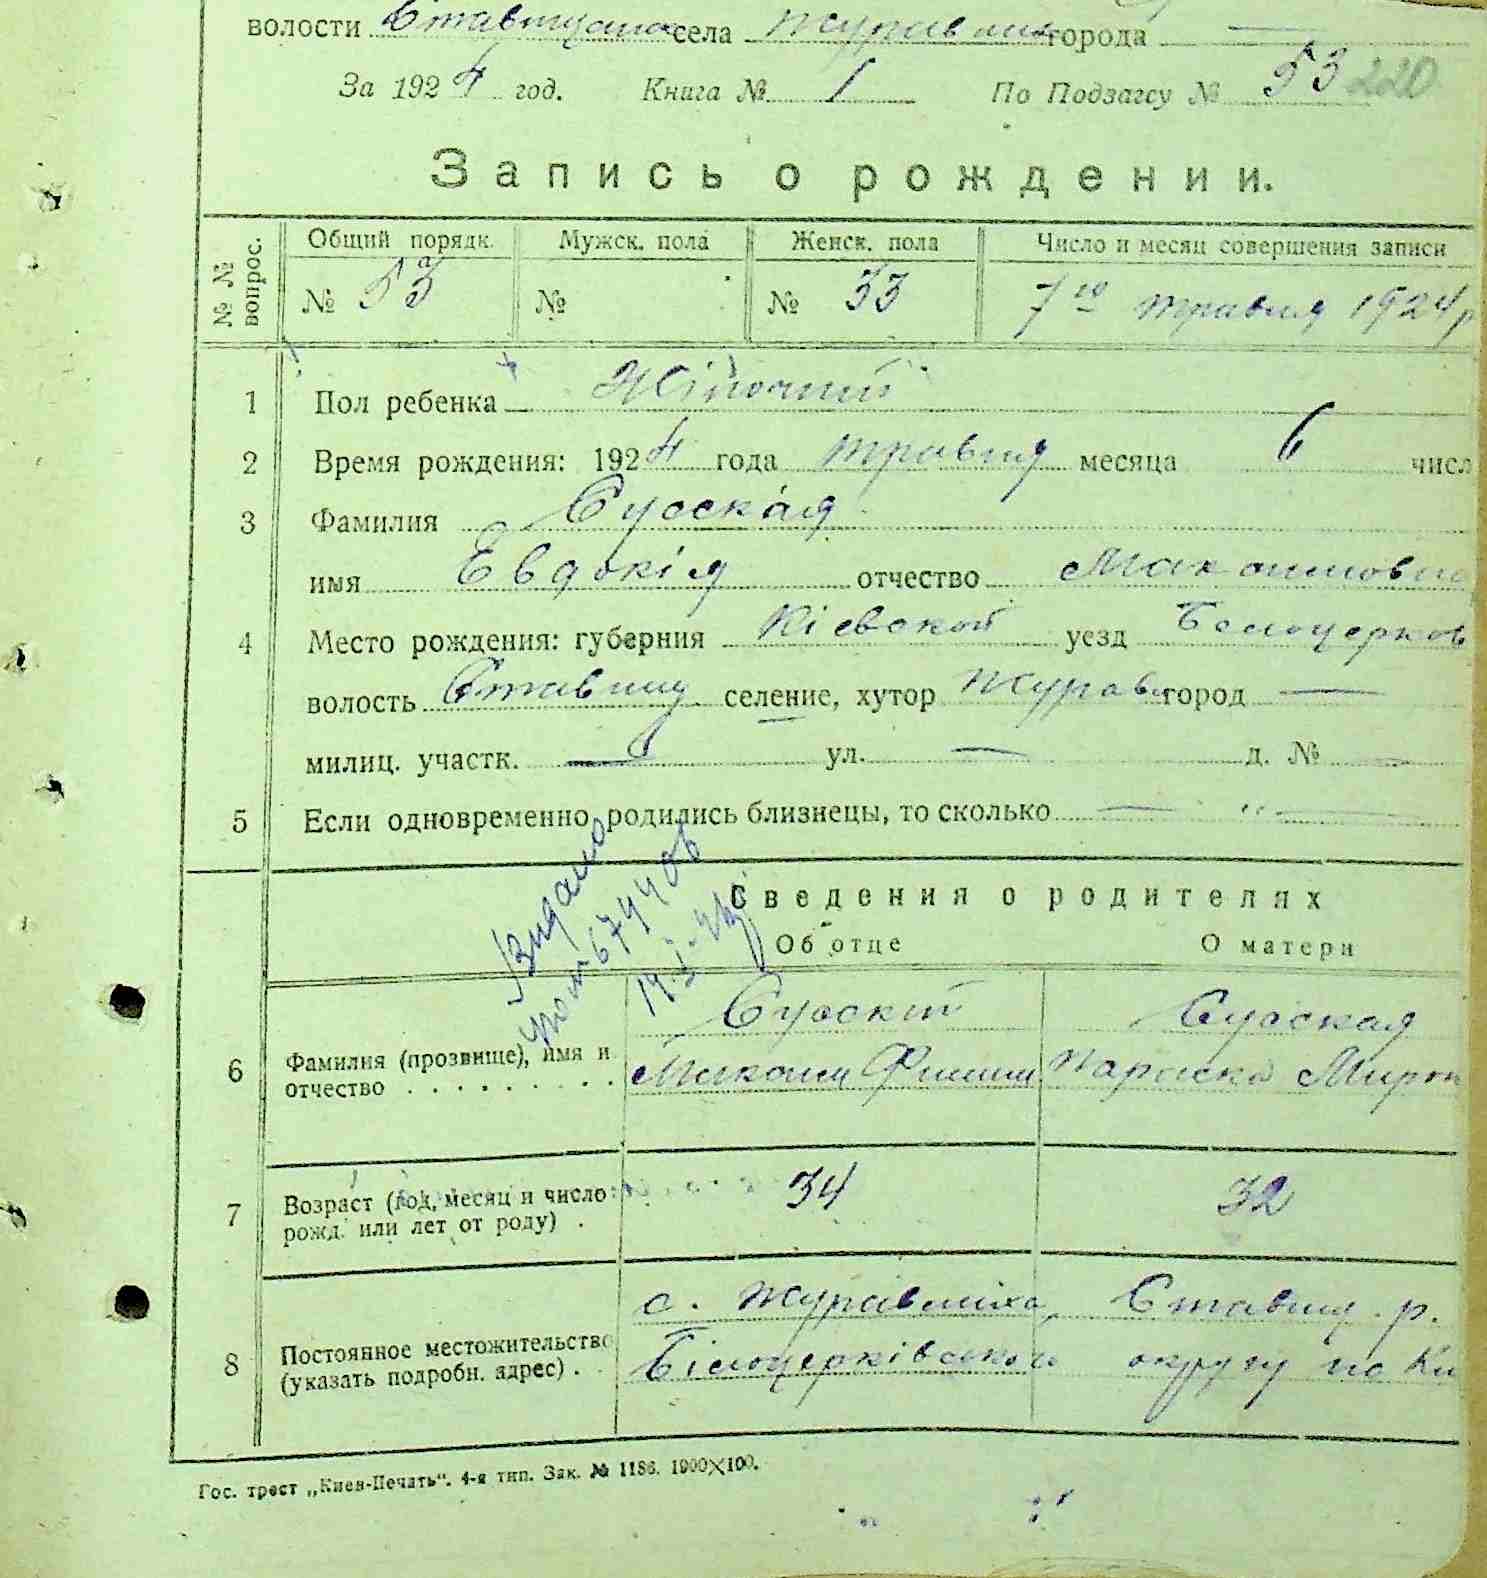 волости Ставищанск села Журавлиха города —
За 1924 год. Книга № 1 По Подзагсу № 53 220
Запись о рождении.
№№ вопрос. Общий порядк. Мужск. пола Женск. пола Число и месяц совершения записи
№ 53 № № 33 7го травня 1924 р
1 Пол ребенка Жіночий
2 Время рождения: 1924 года травня месяца 6 числ
3 Фамилия Сусская
имя Евдокія отчество Максимовн
4 Место рождения: губерния Кіевской уезд Белоцерков
волость Ставищ селение, хутор Журавл город —
милиц. участк. — ул. — д. № —
5 Если одновременно родились близнецы, то сколько — " —
Видано
19.I-
Сведения о родителях
Об отце О матери
Сусский Сусская
6 Фамилия (прозвище), имя и Максим Филип Параска Мирон
отчество . . . . . . . .
7 Возраст (год, месяц и число 34 32
рожд. или лет от роду) .
с. Журавлиха, Ставищ. р.
8 Постоянное местожительство Білоцерківського округу на Ки
(указать подробн. адрес) . .
Гос. трест „Киев-Печать“. 4-я тип. Зак. № 1186. 1900×100.